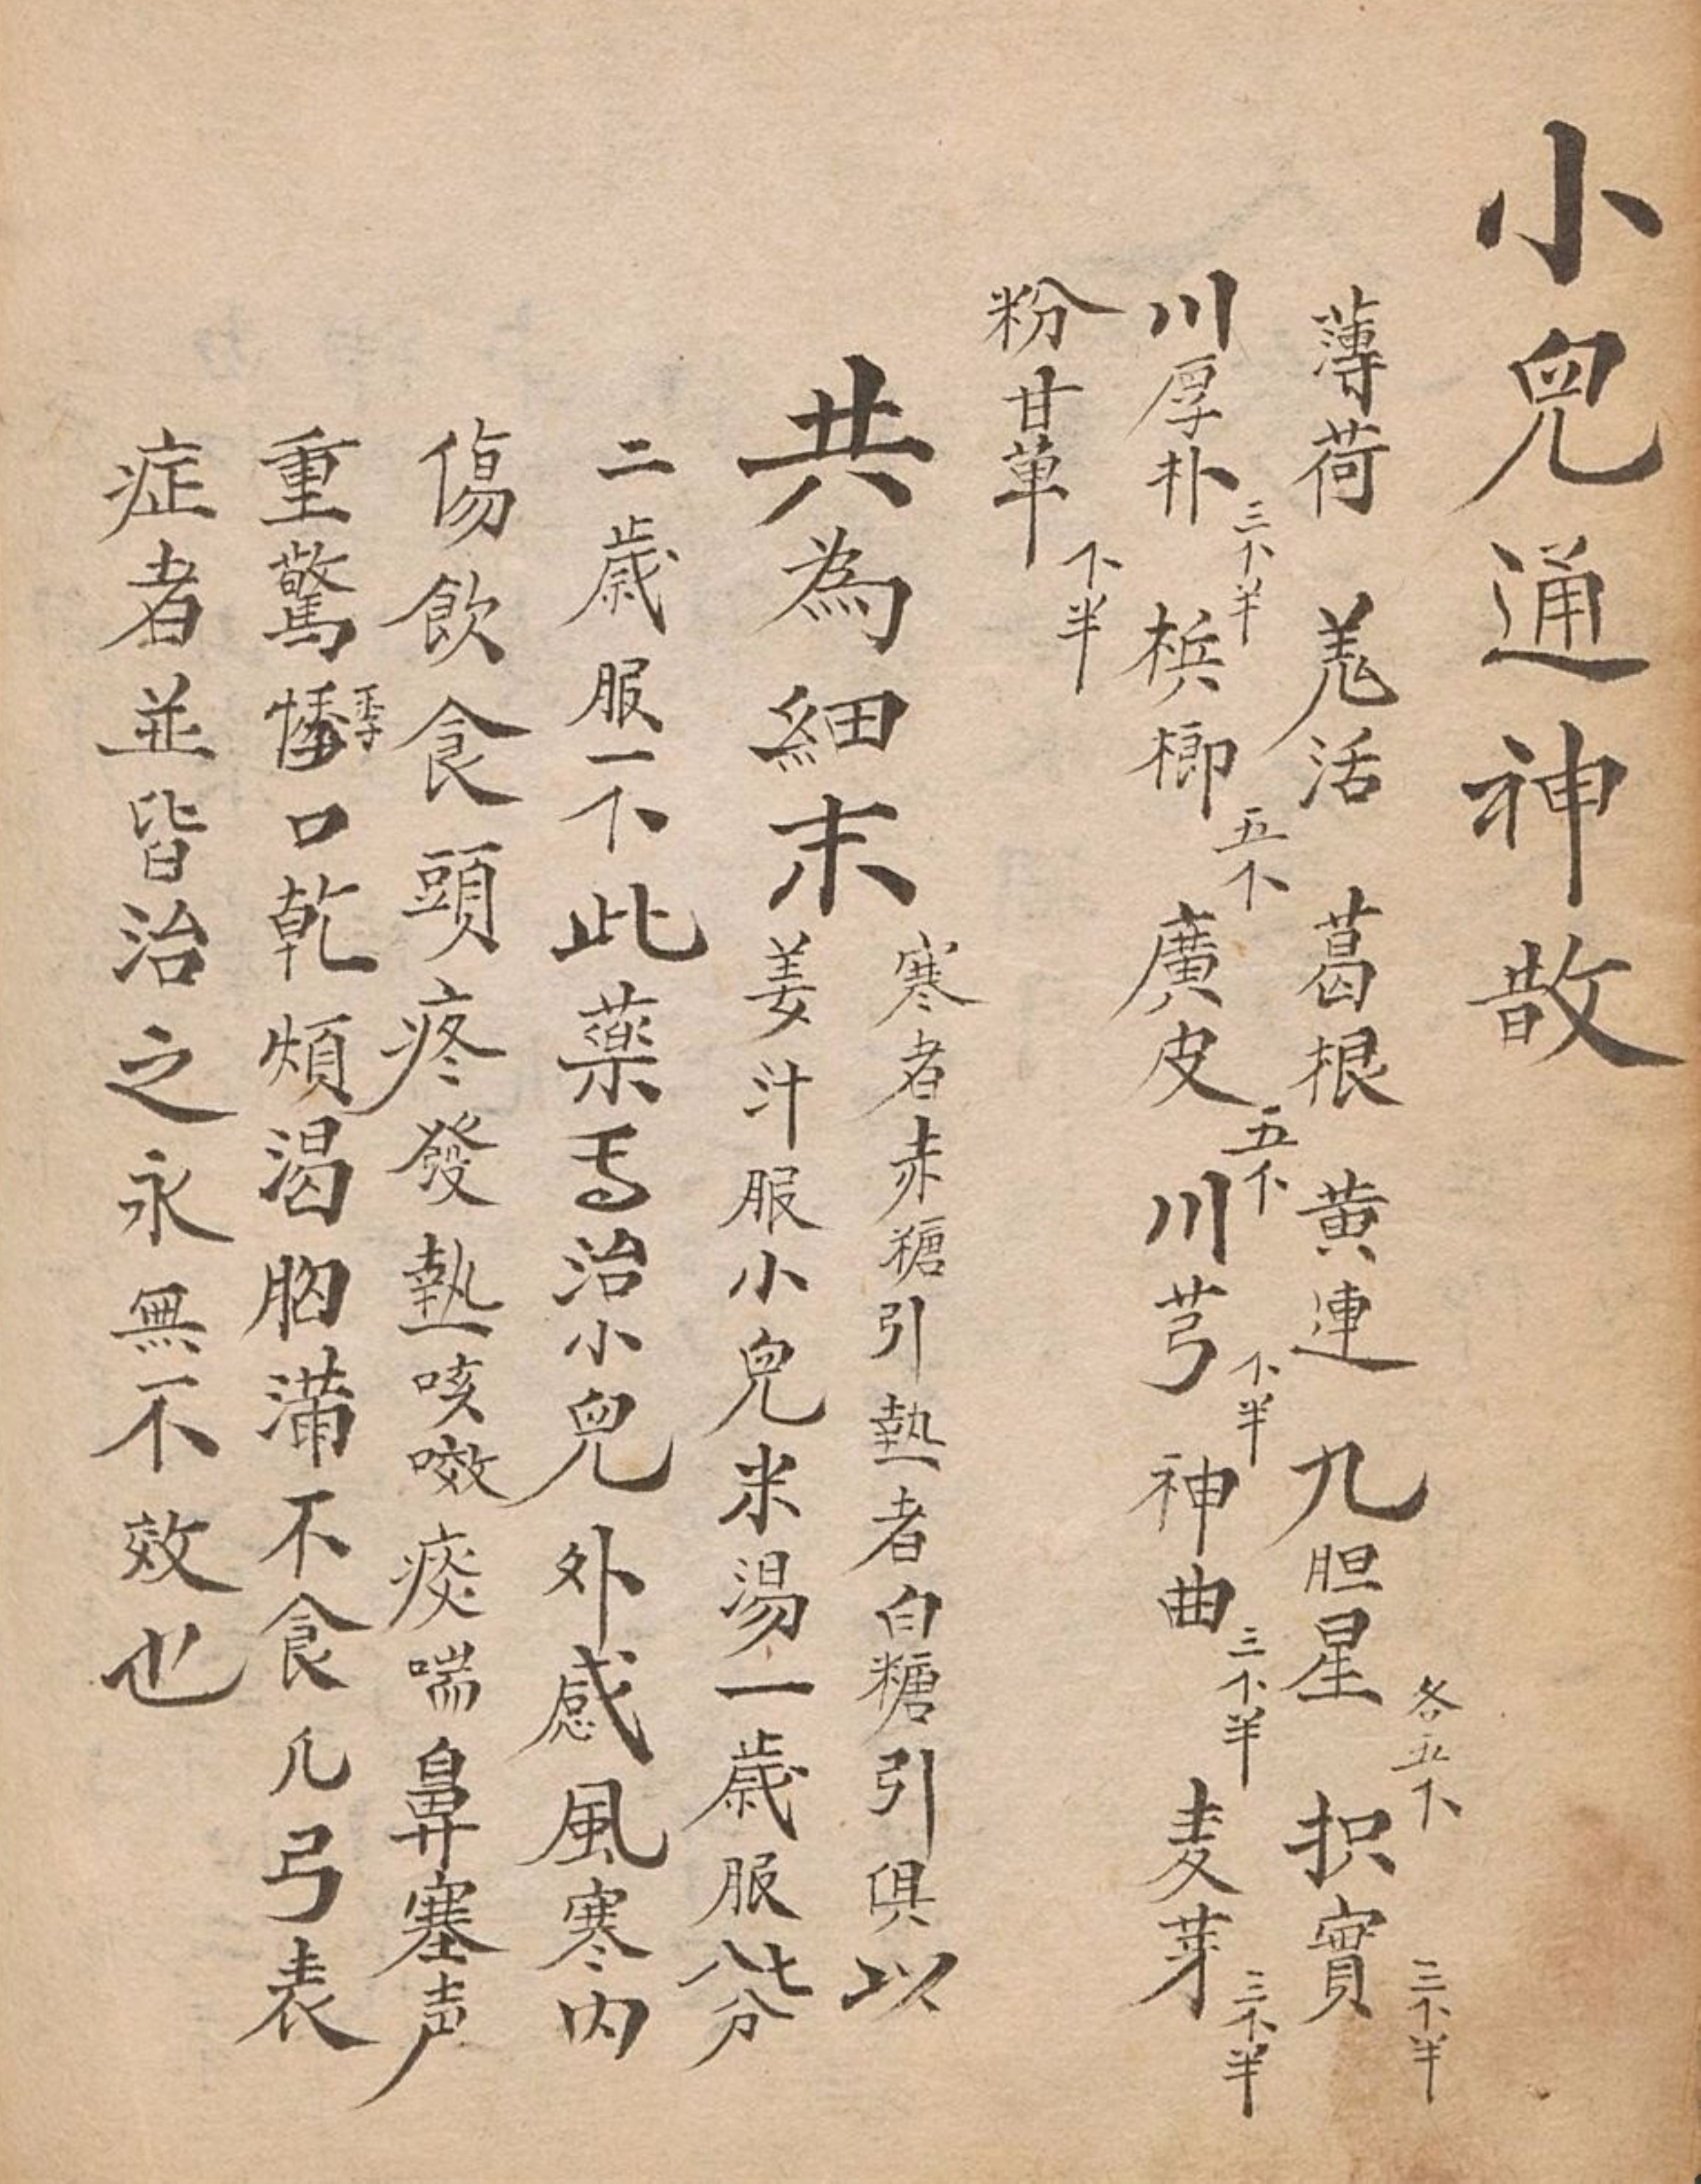 小兒通神散
薄荷 羗活 葛根 黄連 九胆星各五下 枳實三下半
川厚朴三下半 梹榔五下 廣皮五下 川芎下半 神曲三下半 麦芽三下半
粉甘草下半
共為細末
寒者赤糖引熱者白糖引俱以
姜汁服小兒米湯一歲服七八分
二歲服一下此藥耑治小兒外感風寒内
傷飲食頭疼發熱咳嗽痰喘鼻塞声
重驚悸口乾煩渴胸滿不食凡弓表
症者並皆治之永無不效也